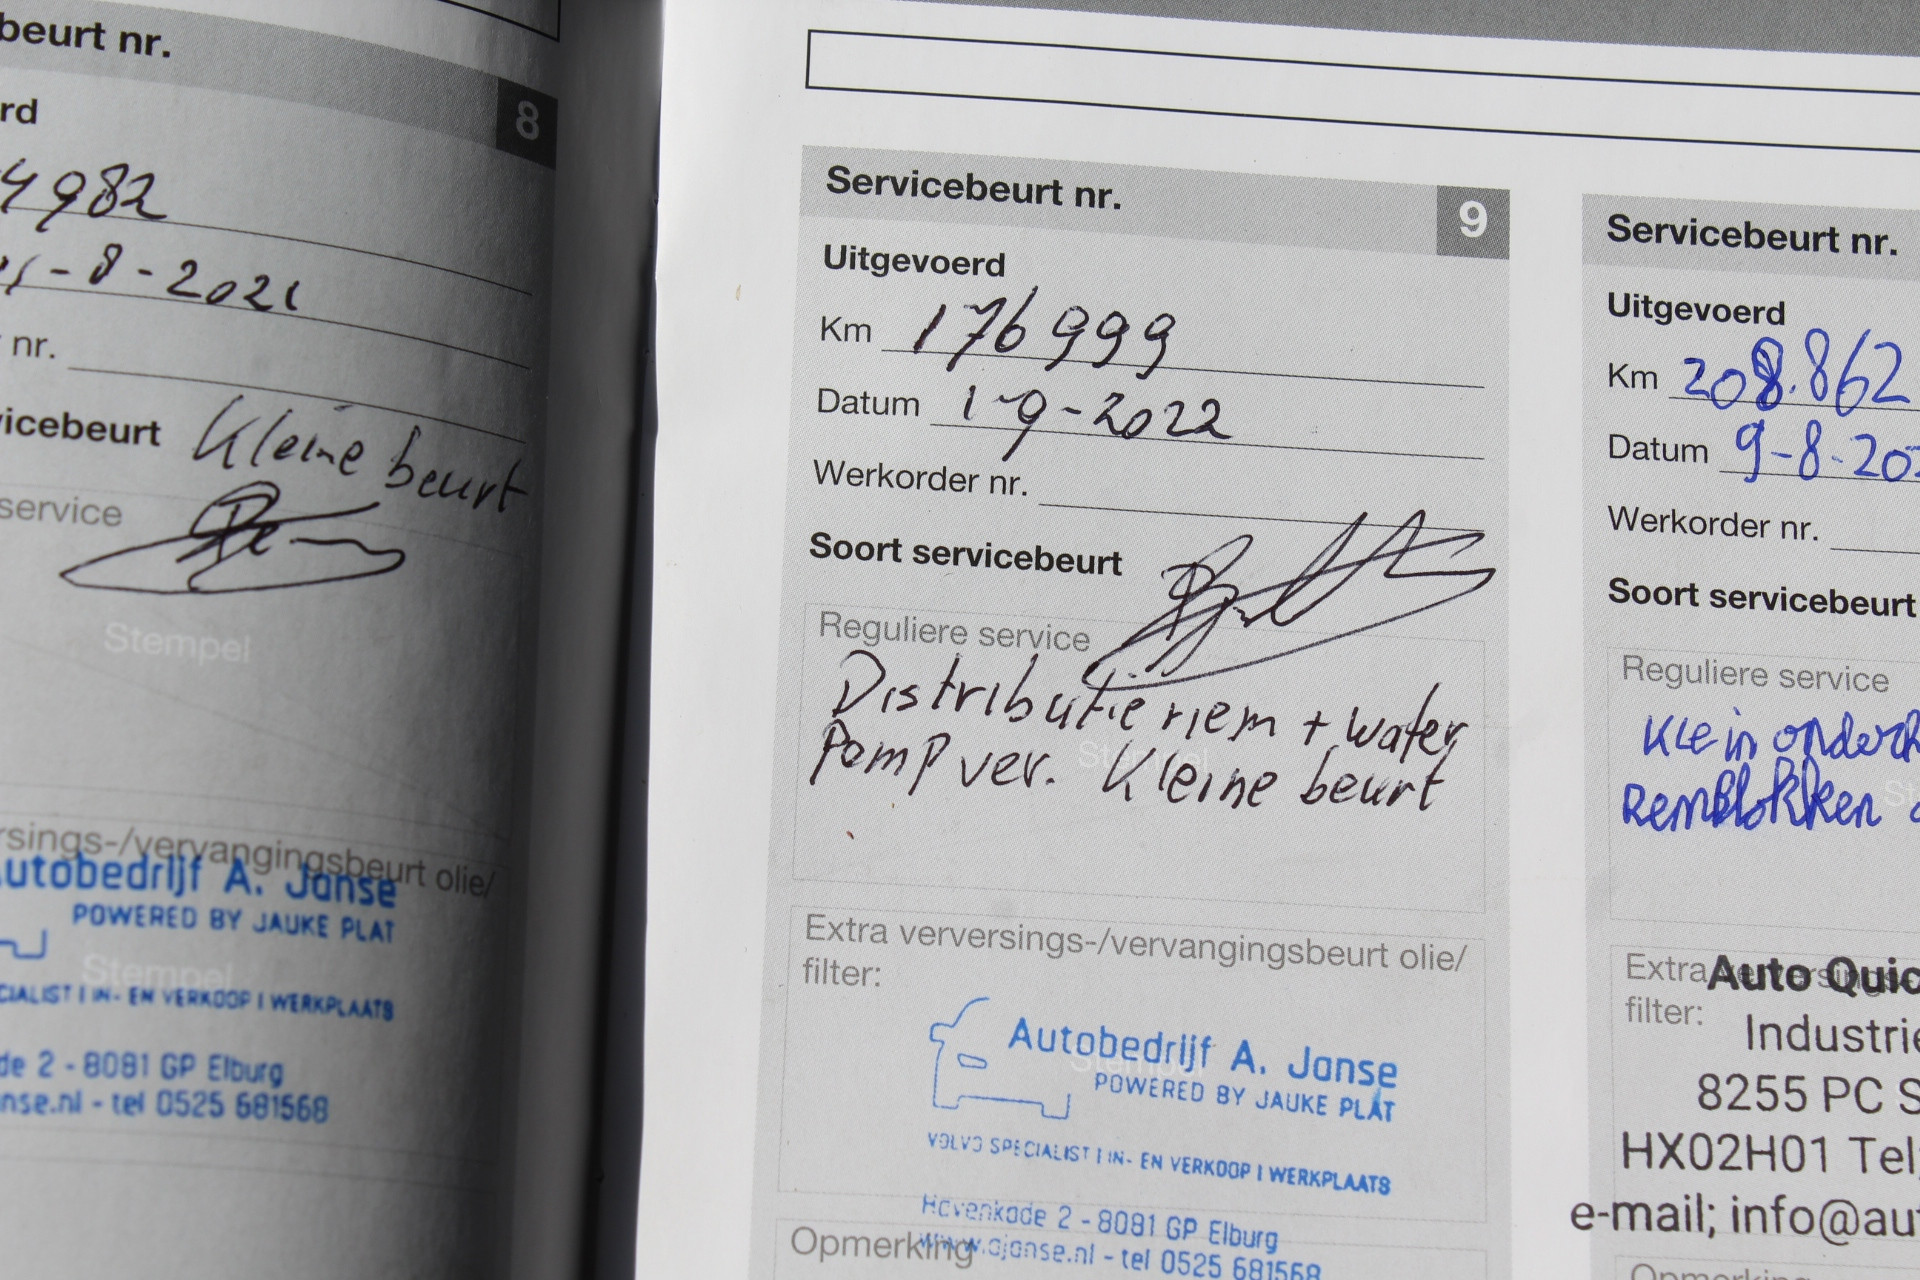 beurt nr.
8
rd
4982
-8-2021
nr.
icebeurt Kleine beurt
service
Stempel
rsings-/vervangingsbeurt olie/
utobedrijf A. Janse
POWERED BY JAUKE PLAT
Stempel
CIALIST | IN- EN VERKOOP | WERKPLAATS
de 2 - 8081 GP Elburg
nse.nl - tel 0525 681568
Servicebeurt nr.
9
Uitgevoerd
Km 176999
Datum 1-9-2022
Werkorder nr.
Soort servicebeurt
Reguliere service
Distributie riem + water
Pomp ver. Kleine beurt
Stempel
Extra verversings-/vervangingsbeurt olie/
filter:
Autobedrijf A. Janse
Stempel
POWERED BY JAUKE PLAT
VOLVO SPECIALIST | IN- EN VERKOOP | WERKPLAATS
Havenkade 2 - 8081 GP Elburg
Opmerking
www.ajanse.nl - tel 0525 681568
Servicebeurt nr.
Uitgevoerd
Km 208.862
Datum 9-8-20
Werkorder nr.
Soort servicebeurt
Reguliere service
Klein onderh
Remblokken
St
Extra verversings-
filter:
Auto Quic
Industrie
8255 PC S
HX02H01 Tel;
e-mail; info@aut
Opmerking